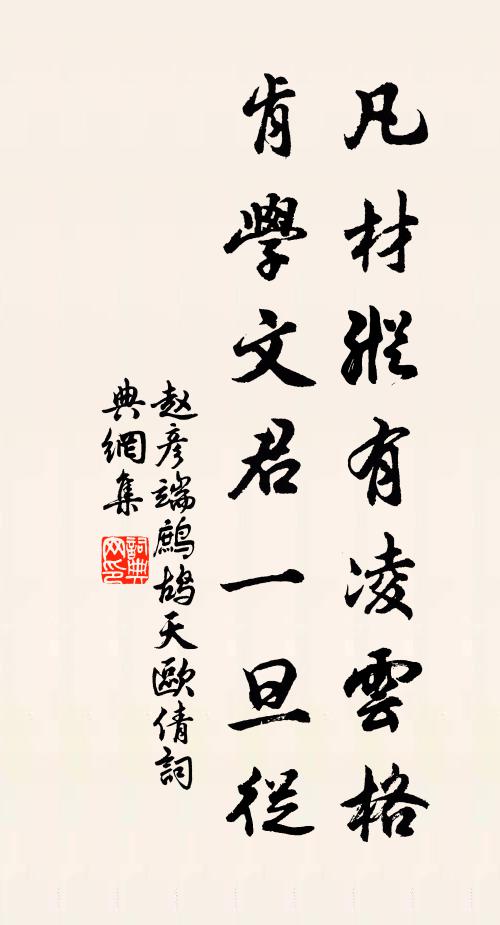 凡材縱有凌雲格
肯學文君一旦從
赵彦端鷓鴣天歐倩詞
典網集
詞典
网印